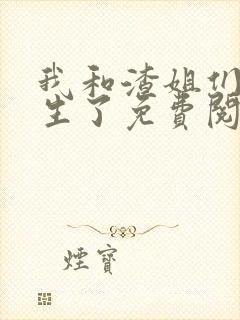 我和渣姐们
生了免费阅
煙寶